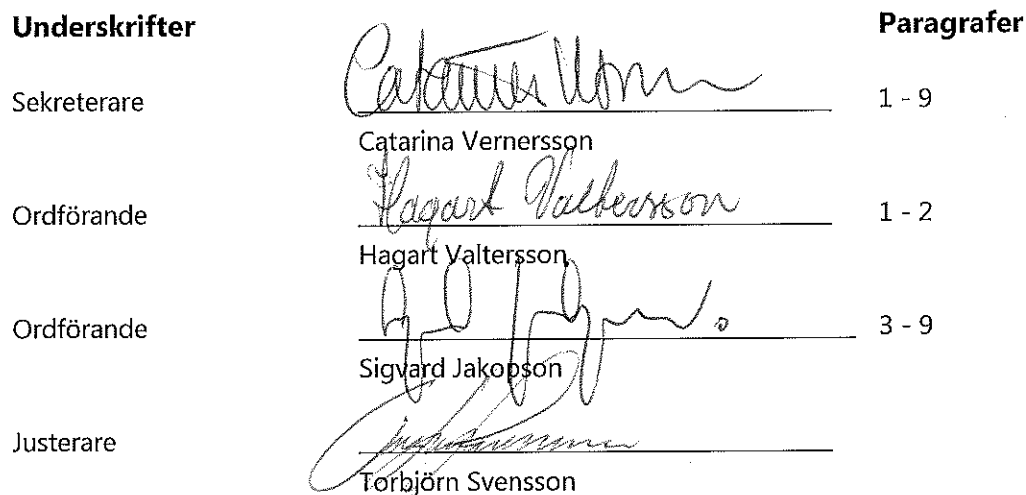 Underskrifter Paragrafer
Sekreterare 1 - 9
Catarina Vernersson
Hagart Valtersson
Ordförande 1 - 2
Hagart Valtersson
Ordförande 3 - 9
Sigvard Jakopson
Justerare
Torbjörn Svensson